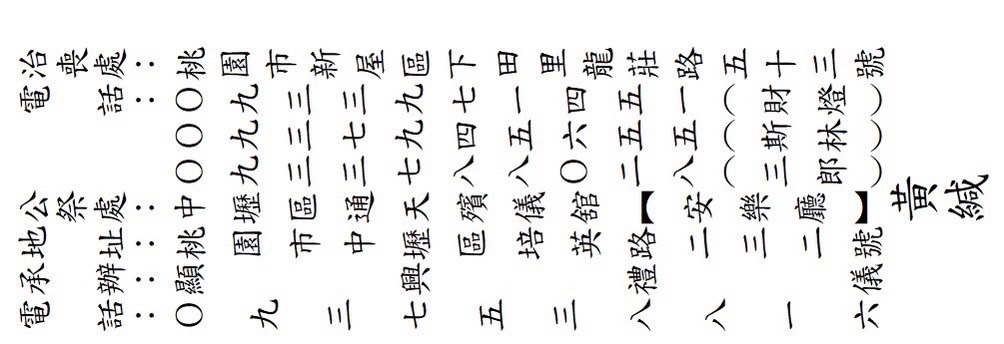 治喪處：桃園市新屋區下田里龍莊路五十三號
電話：〇九三三九七一四五一（財燈）
〇九三七九四五六五五（斯林）
〇九三三七八八〇二八（三郎）
公祭處：中壢區通天殯儀館【安樂廳】
地址：桃園市中壢區培英路二三二號
承辦：顯興禮儀
電話：〇九三七五三八八一六
黃緘